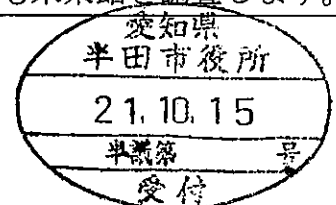 を調査します。
愛知県
半田市役所
21.10.15
半議第 号
受付